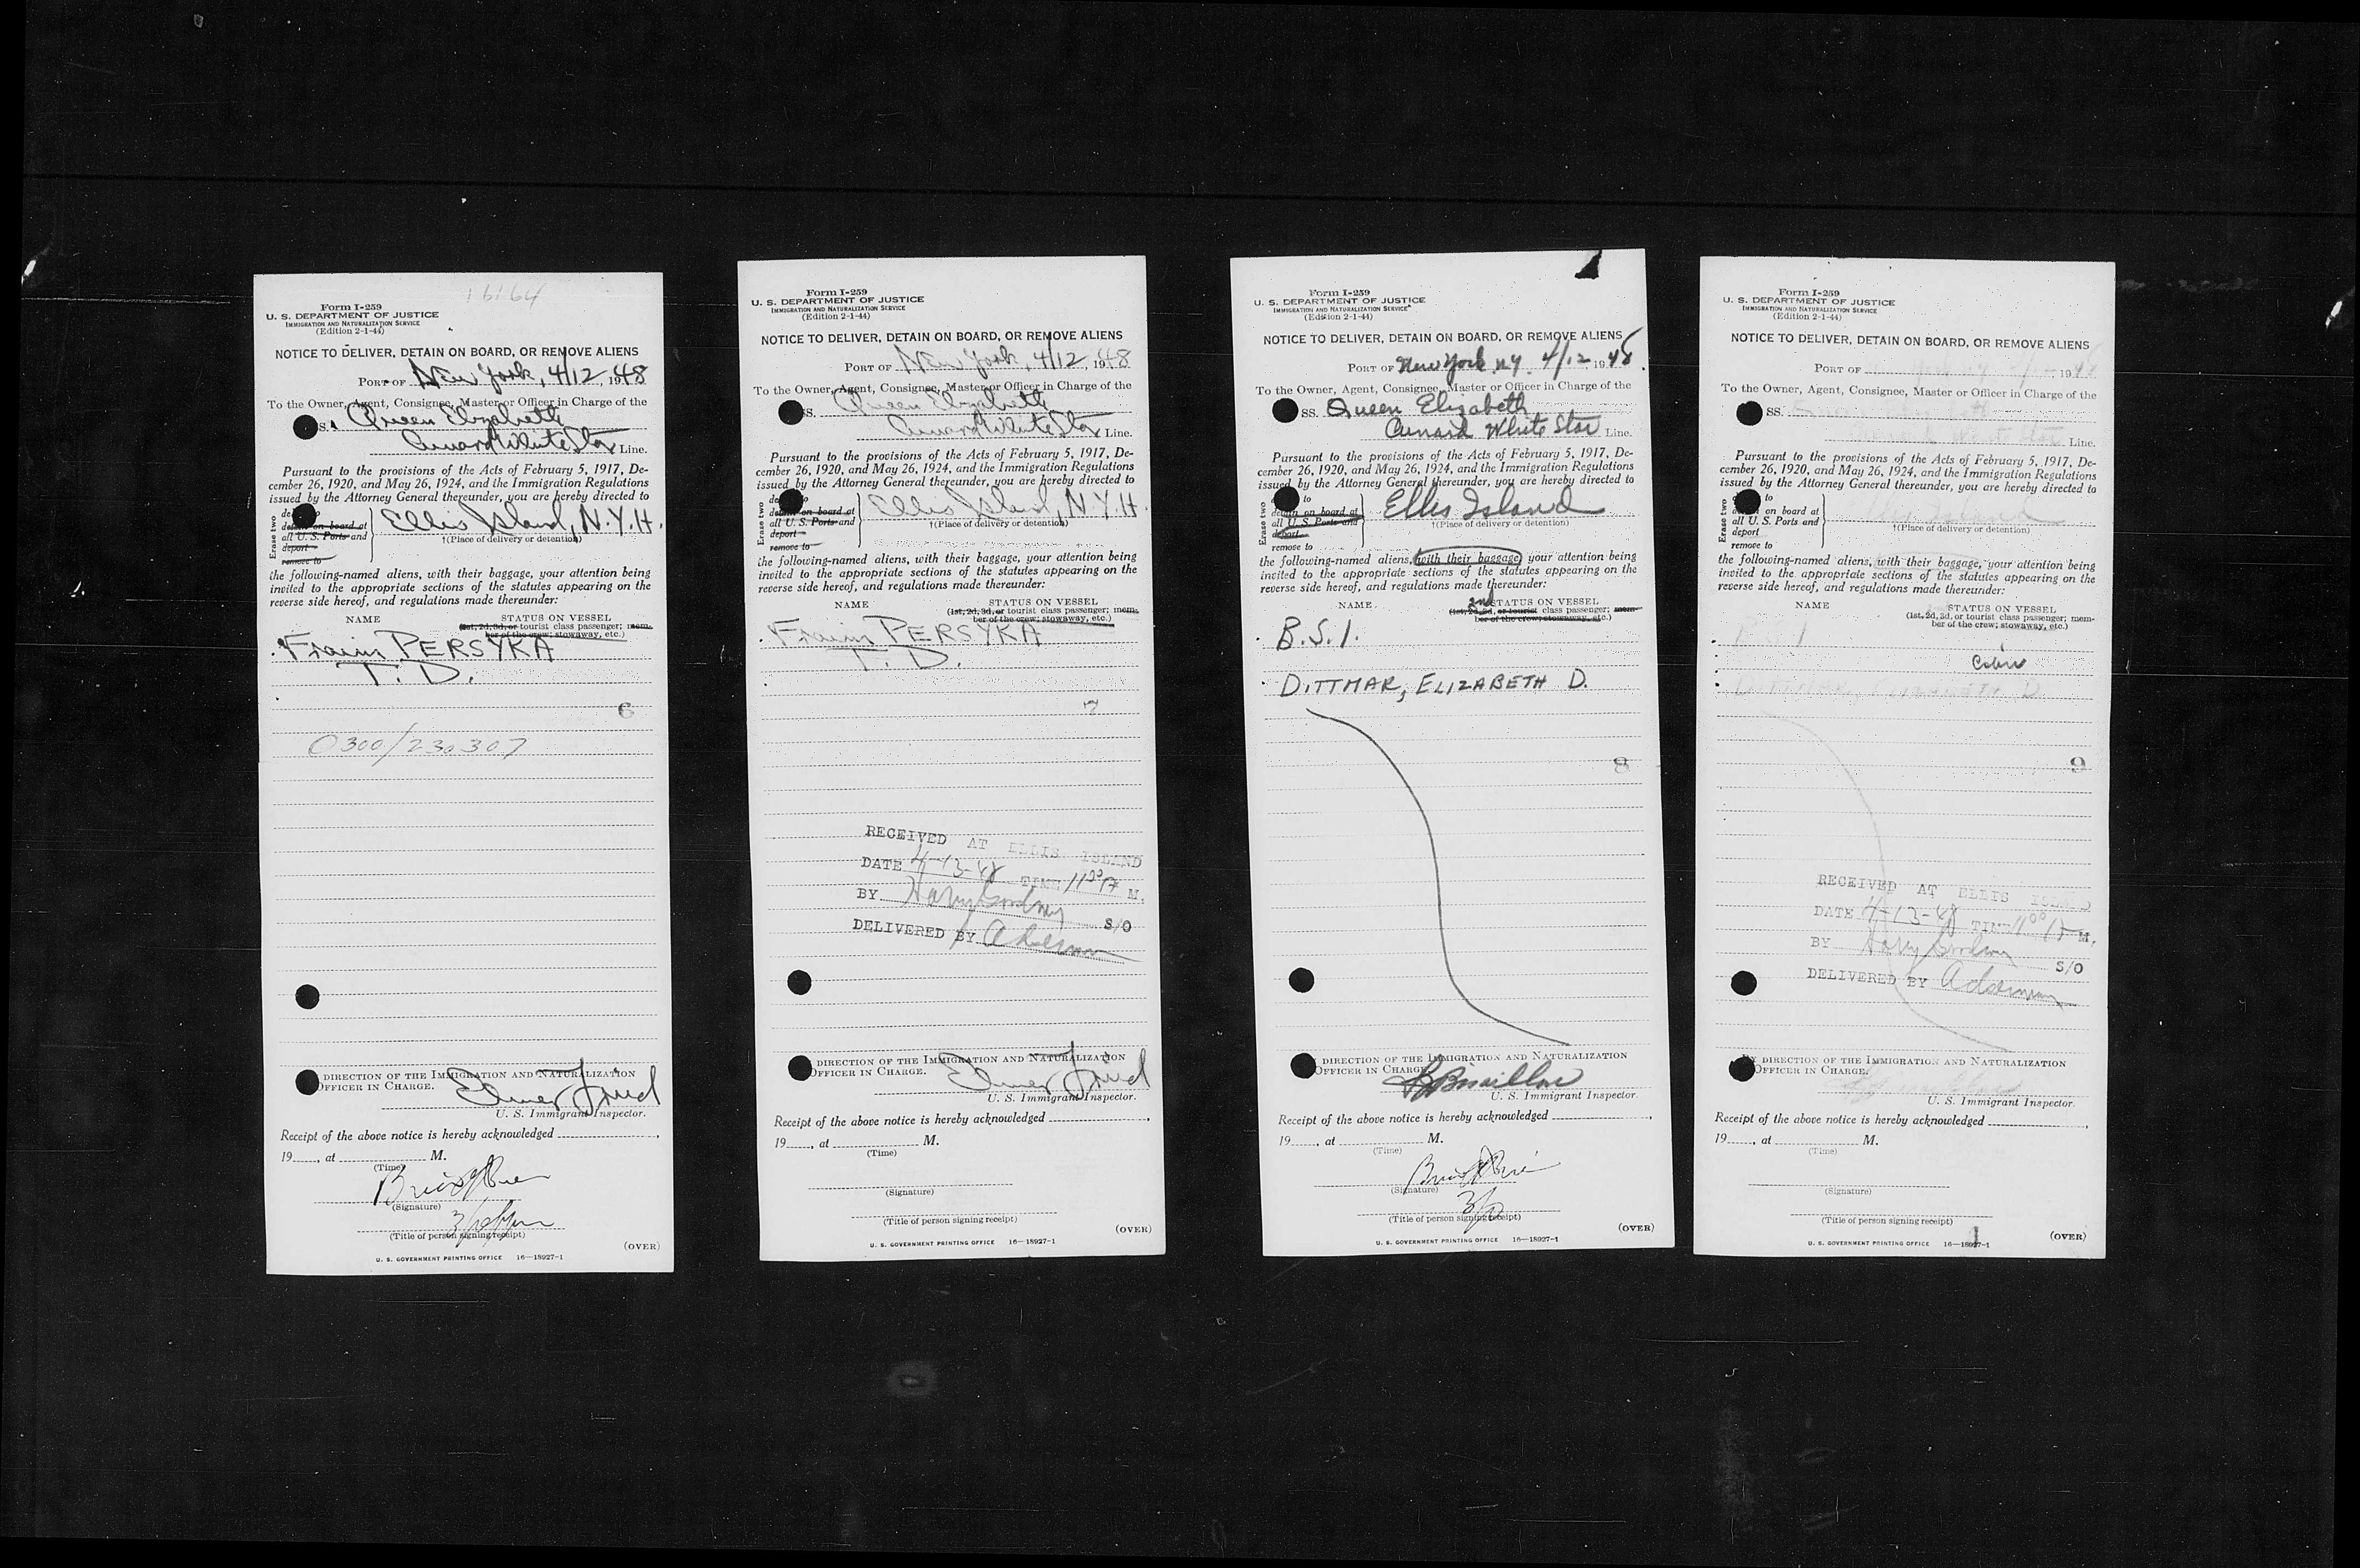 16164
Form I-259
U. S. DEPARTMENT OF JUSTICE
IMMIGRATION AND NATURALIZATION SERVICE
(Edition 2-1-44)
NOTICE TO DELIVER, DETAIN ON BOARD, OR REMOVE ALIENS
PORT OF New York, 4/12, 1948
To the Owner, Agent, Consignee, Master or Officer in Charge of the
S. Queen Elizabeth
Cunard White Star Line.
Pursuant to the provisions of the Acts of February 5, 1917, De-
cember 26, 1920, and May 26, 1924, and the Immigration Regulations
issued by the Attorney General thereunder, you are hereby directed to
Erase two
de
detain on board at
all U. S. Ports and
deport
remove to
Ellis Island, N.Y.H.
†(Place of delivery or detention)
the following-named aliens, with their baggage, your attention being
invited to the appropriate sections of the statutes appearing on the
reverse side hereof, and regulations made thereunder:
NAME STATUS ON VESSEL
(1st, 2d, 3d, or tourist class passenger; mem-
ber of the crew; stowaway, etc.)
PERSYKA
T. D.
6
0300/230307
DIRECTION OF THE IMMIGRATION AND NATURALIZATION
OFFICER IN CHARGE.
U. S. Immigrant Inspector.
Receipt of the above notice is hereby acknowledged
19, at M.
(Time)
(Signature)
(Title of person signing receipt)
(OVER)
U. S. GOVERNMENT PRINTING OFFICE 16—18927-1
Form I-259
U. S. DEPARTMENT OF JUSTICE
IMMIGRATION AND NATURALIZATION SERVICE
(Edition 2-1-44)
NOTICE TO DELIVER, DETAIN ON BOARD, OR REMOVE ALIENS
PORT OF New York, 4/12, 1948
To the Owner, Agent, Consignee, Master or Officer in Charge of the
SS. Queen Elizabeth
Cunard White Star Line.
Pursuant to the provisions of the Acts of February 5, 1917, De-
cember 26, 1920, and May 26, 1924, and the Immigration Regulations
issued by the Attorney General thereunder, you are hereby directed to
Erase two
de to
detain on board at
all U. S. Ports and
deport
remove to
Ellis Island, N.Y.H.
†(Place of delivery or detention)
the following-named aliens, with their baggage, your attention being
invited to the appropriate sections of the statutes appearing on the
reverse side hereof, and regulations made thereunder:
NAME STATUS ON VESSEL
(1st, 2d, 3d, or tourist class passenger; mem-
ber of the crew; stowaway, etc.)
PERSYKA
T. D.
7
RECEIVED AT ELLIS ISLAND
DATE 4-13-48 TIME 11:00 A M.
BY Harry S/O
DELIVERED BY
DIRECTION OF THE IMMIGRATION AND NATURALIZATION
OFFICER IN CHARGE.
U. S. Immigrant Inspector.
Receipt of the above notice is hereby acknowledged
19, at M.
(Time)
(Signature)
(Title of person signing receipt)
(OVER)
U. S. GOVERNMENT PRINTING OFFICE 16—18927-1
Form I-259
U. S. DEPARTMENT OF JUSTICE
IMMIGRATION AND NATURALIZATION SERVICE
(Edition 2-1-44)
NOTICE TO DELIVER, DETAIN ON BOARD, OR REMOVE ALIENS
PORT OF New York N.Y. 4/12 1948.
To the Owner, Agent, Consignee, Master or Officer in Charge of the
SS. Queen Elizabeth
Cunard White Star Line.
Pursuant to the provisions of the Acts of February 5, 1917, De-
cember 26, 1920, and May 26, 1924, and the Immigration Regulations
issued by the Attorney General thereunder, you are hereby directed to
Erase two
to
detain on board at
all U. S. Ports and
deport
remove to
Ellis Island
†(Place of delivery or detention)
the following-named aliens, with their baggage, your attention being
invited to the appropriate sections of the statutes appearing on the
reverse side hereof, and regulations made thereunder:
NAME 2nd STATUS ON VESSEL
(1st, 2d, 3d, or tourist class passenger; mem-
ber of the crew; stowaway, etc.)
B.S.I.
DITTMAR, ELIZABETH D.
8
DIRECTION OF THE IMMIGRATION AND NATURALIZATION
OFFICER IN CHARGE.
U. S. Immigrant Inspector.
Receipt of the above notice is hereby acknowledged
19, at M.
(Time)
(Signature)
(Title of person signing receipt)
(OVER)
U. S. GOVERNMENT PRINTING OFFICE 16—18927-1
Form I-259
U. S. DEPARTMENT OF JUSTICE
IMMIGRATION AND NATURALIZATION SERVICE
(Edition 2-1-44)
NOTICE TO DELIVER, DETAIN ON BOARD, OR REMOVE ALIENS
PORT OF 1948
To the Owner, Agent, Consignee, Master or Officer in Charge of the
SS.
White Star Line.
Pursuant to the provisions of the Acts of February 5, 1917, De-
cember 26, 1920, and May 26, 1924, and the Immigration Regulations
issued by the Attorney General thereunder, you are hereby directed to
Erase two
to
on board at
all U. S. Ports and
deport
remove to
Ellis Island
†(Place of delivery or detention)
the following-named aliens, with their baggage, your attention being
invited to the appropriate sections of the statutes appearing on the
reverse side hereof, and regulations made thereunder:
NAME STATUS ON VESSEL
(1st, 2d, 3d, or tourist class passenger; mem-
ber of the crew; stowaway, etc.)
DITTMAR, ELIZABETH D.
9
RECEIVED AT ELLIS ISLAND
DATE 4-13-48 TIME 11:00 M.
BY Harry S/O
DELIVERED BY
BY DIRECTION OF THE IMMIGRATION AND NATURALIZATION
OFFICER IN CHARGE.
U. S. Immigrant Inspector.
Receipt of the above notice is hereby acknowledged
19, at M.
(Time)
(Signature)
(Title of person signing receipt)
(OVER)
U. S. GOVERNMENT PRINTING OFFICE 16—18927-1